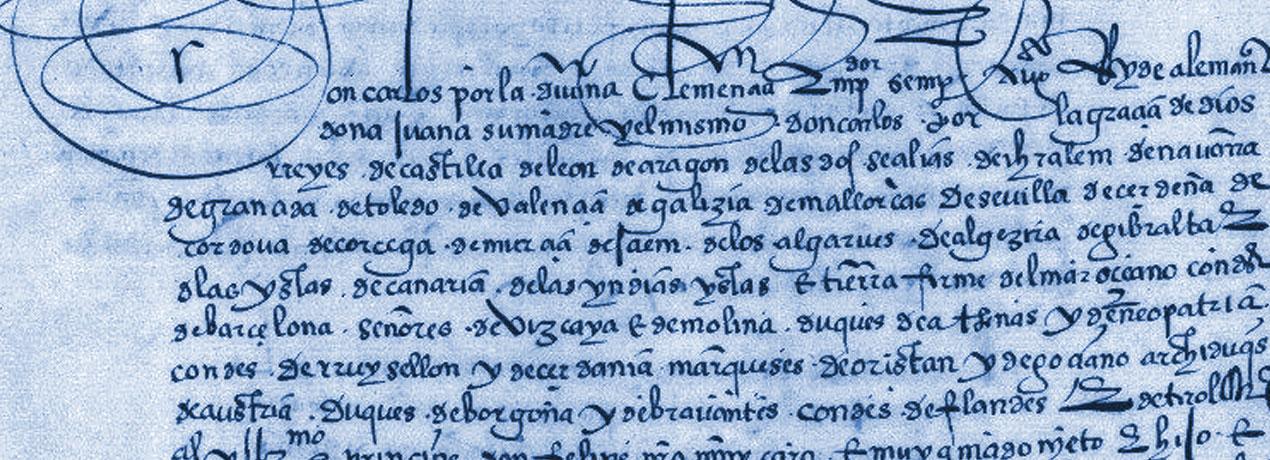 on carlos por la divina Clemençia Emp[dor] semp Aug[o] Rey de aleman[a]
dona Juana su madre y el mismo don carlos por la graçia de dios
reyes de castilla de leon de aragon de las dos seçilias de ihrlem de navarra
de granada de toledo de Valençia de galizia de mallorcas de sevilla de cerdeña de
cordova de corcega de murçia de Jaen de los algarves de algezira de gibraltar
de las yslas de canaria de las yndias yslas E tierra firme del mar oceano condes
de barcelona señores de Vizcaya E de molina duques de athenas y de neopatria
condes de rruysellon y de cerdania marqueses de oristan y de goçiano archiduqs
de austria duques de borgoña y de bravante condes de flandes E de tirol
al yll[mo] principe don felipe nro muy caro E muy amado nieto E hijo E